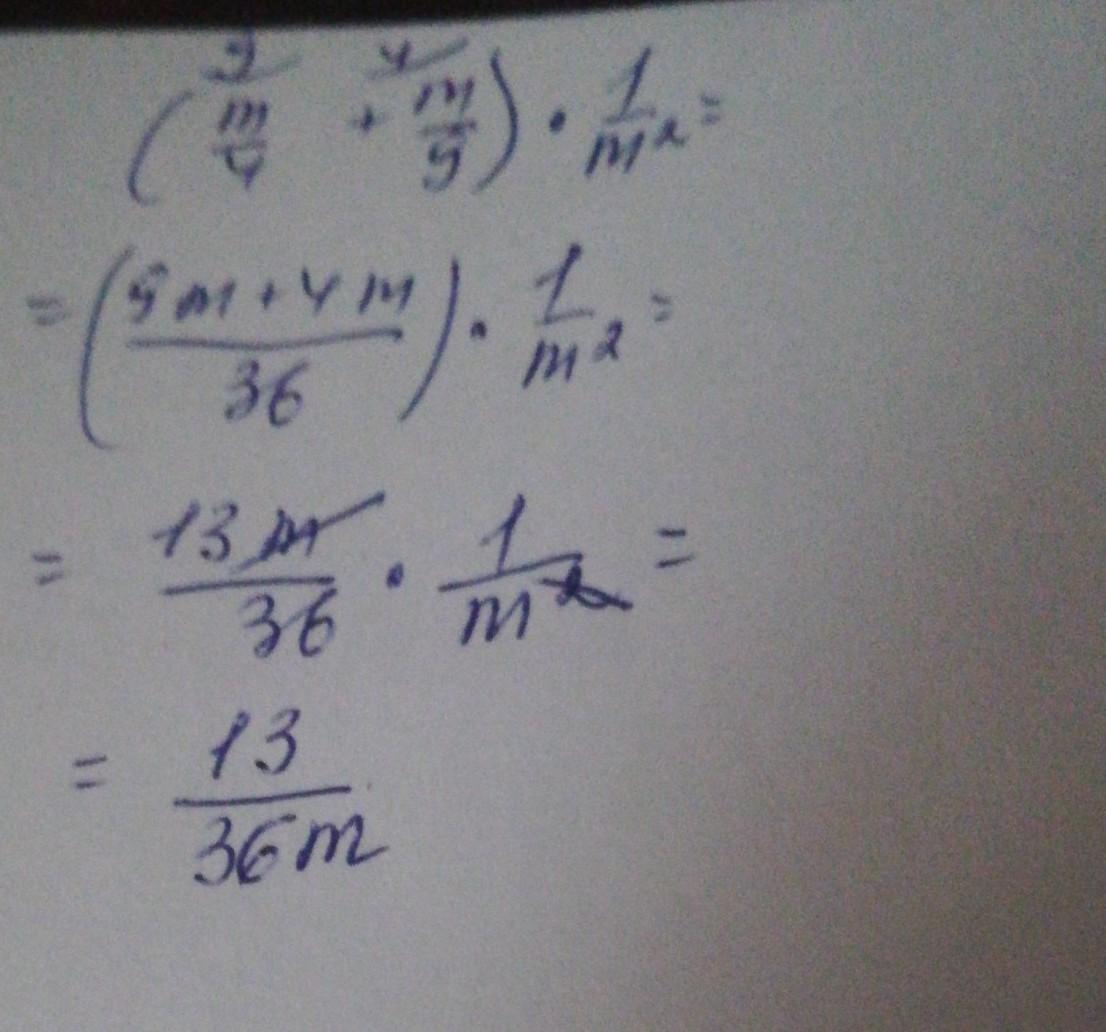 (9/ m/4 + 4/ m/9) · 1/m² =
= ((9m+4m)/36) · 1/m² =
= 13m/36 · 1/m² =
= 13/36m